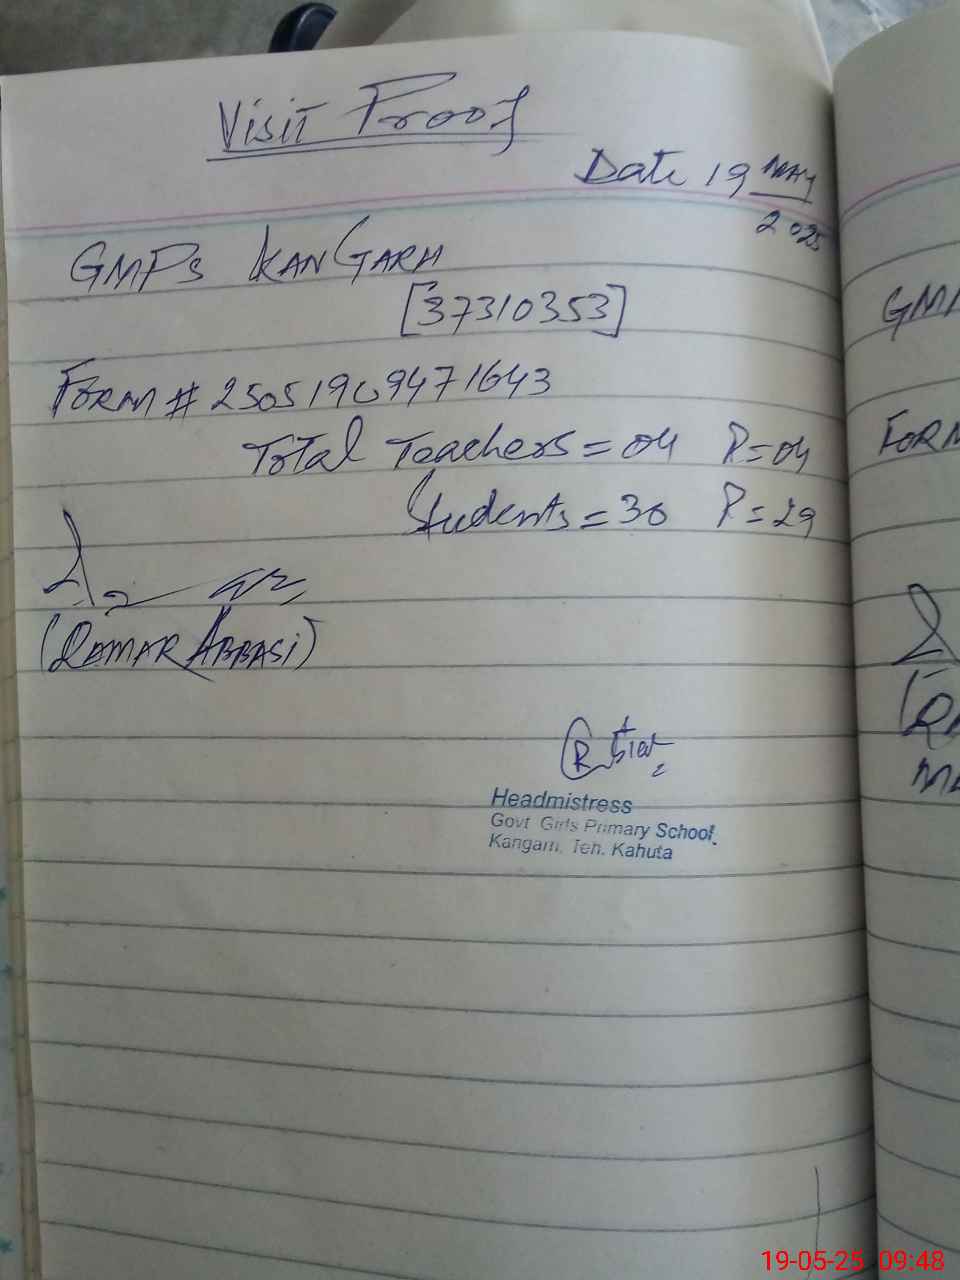 Visit Proof
Date 19 MAY
2025
GMPS KANGARH
[37310353]
FORM # 25051909471643
Total Teachers = 04 P=04
Students = 30 P=29
(QAMAR ABBASI)
Headmistress
Govt Girls Primary School,
Kangarh, Teh. Kahuta
GM
FORM
19-05-25 09:48